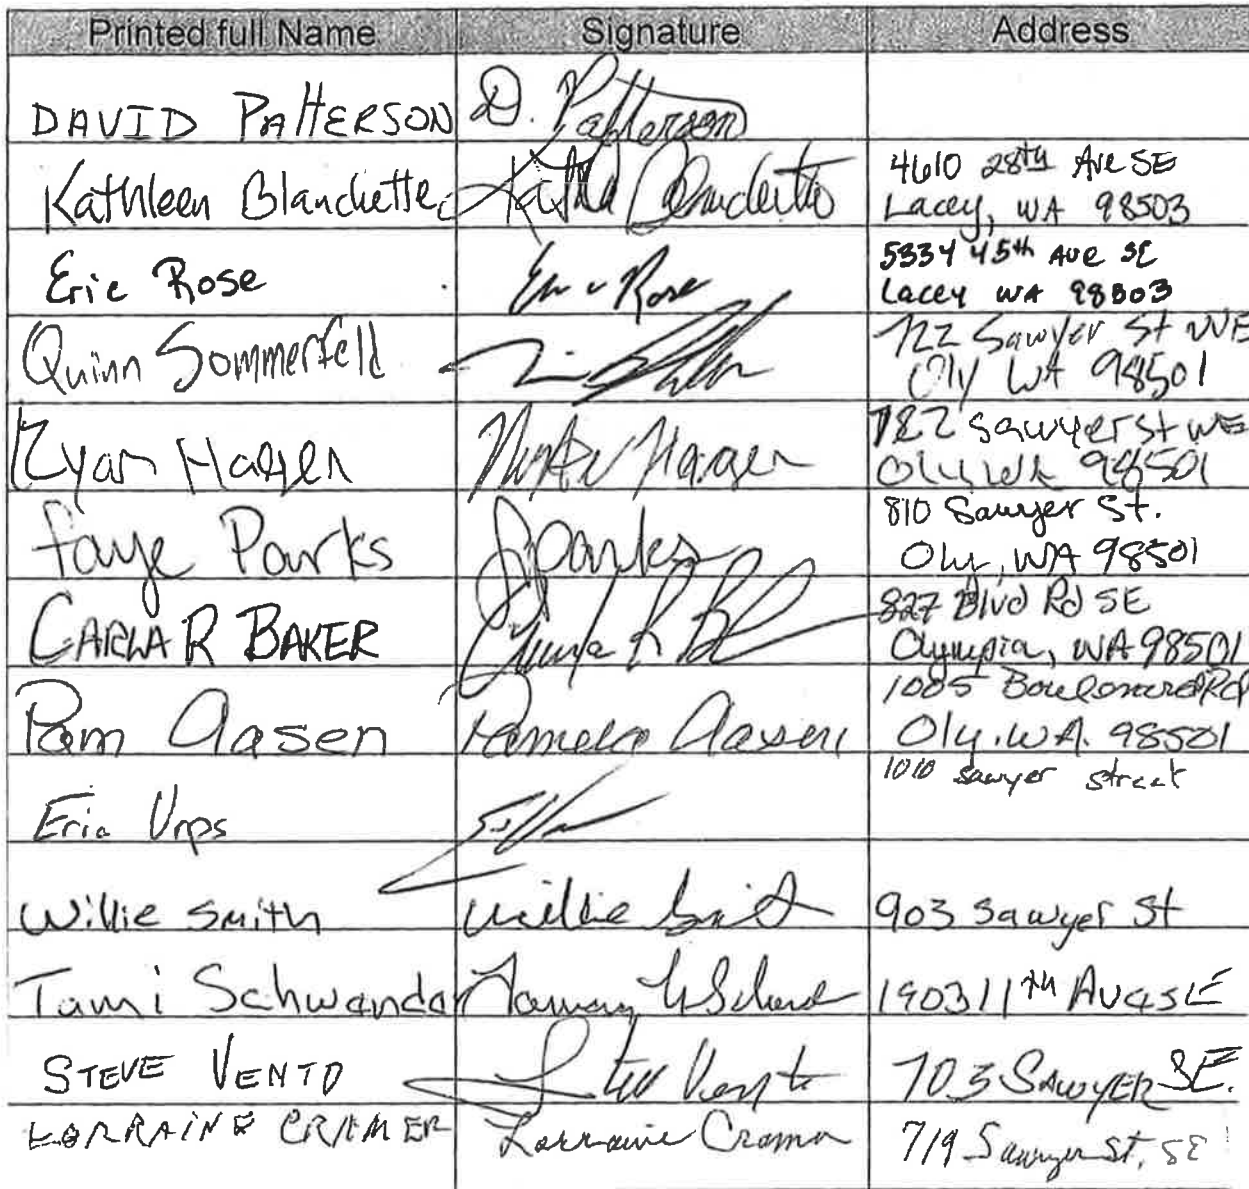 Printed full Name Signature Address
DAVID PATTERSON D. Patterson
Kathleen Blanchette 4610 28th Ave SE
Lacey, WA 98503
Eric Rose Eric Rose 5334 45th Ave SE
Lacey WA 98503
Quinn Sommerfeld 722 Sawyer St
Oly WA 98501
Ryan Hagen Hagen 722 Sawyer St
Oly WA 98501
Faye Parks Parks 810 Sawyer St.
Oly, WA 98501
CARLA R BAKER 827 Blvd Rd SE
Olympia, WA 98501
Pam Aasen Pamela Aasen 1005 Boulevard Rd
Oly. WA. 98501
1010 Sawyer Street
Eric
Willie Smith Willie Smith 903 Sawyer St
Tami 1903 11th Ave SE
STEVE VENTO Steve Vento 703 SAWYER SE.
LORRAINE CRAMER Lorraine Cramer 719 Sawyer St, SE